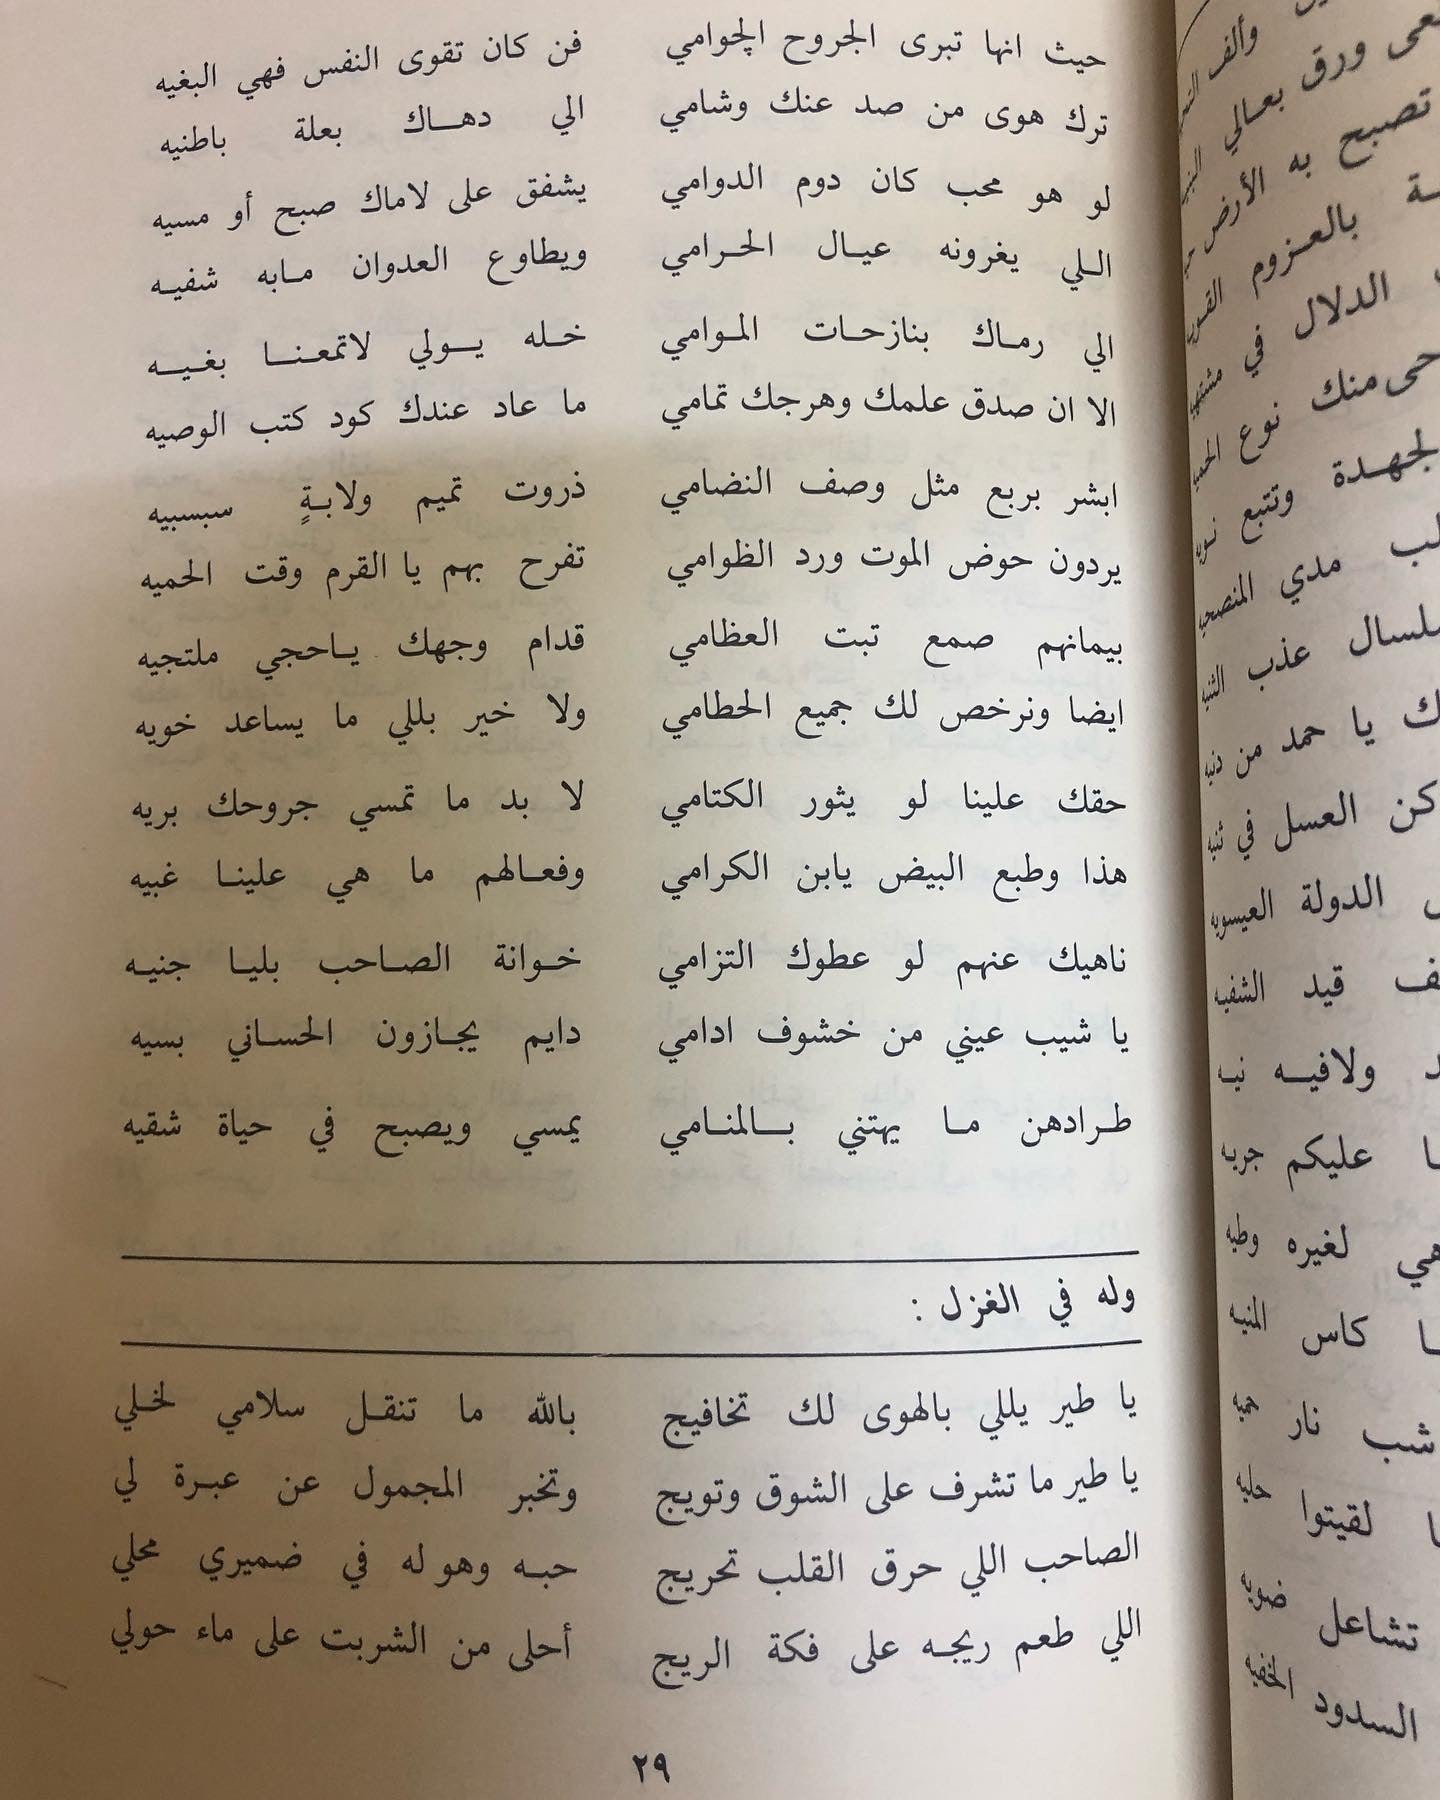 حيث انها تبرى الجروح الچوامي فن كان تقوى النفس فهي البغيه
ترك هوى من صد عنك وشامي الي دهاك بعلة باطنيه
لو هو محب كان دوم الدوامي يشفق على لاماك صبح أو مسيه
اللي يغرونه عيال الحرامي ويطاوع العدوان مابه شفيه
الي رماك بنازحات الموامي خله يولي لاتمعنا بغيه
الا ان صدق علمك وهرجك تمامي ما عاد عندك كود كتب الوصيه
ابشر بربع مثل وصف النضامي ذروت تميم ولابةٍ سبسبيه
يردون حوض الموت ورد الظوامي تفرح بهم يا القرم وقت الحميه
بيمانهم صمع تبت العظامي قدام وجهك ياحجي ملتجيه
ايضا ونرخص لك جميع الحطامي ولا خير بللي ما يساعد خويه
حقك علينا لو يثور الكتامي لا بد ما تمسي جروحك بريه
هذا وطبع البيض يابن الكرامي وفعالهم ما هي علينا غبيه
ناهيك عنهم لو عطوك التزامي خوانة الصاحب بليا جنيه
يا شيب عيني من خشوف ادامي دايم يجازون الحساني بسيه
طرادهن ما يهتني بالمنامي يمسي ويصبح في حياة شقيه
وله في الغزل :
يا طير يللي بالهوى لك تخافيج بالله ما تنقل سلامي لخلي
يا طير ما تشرف على الشوق وتويج وتخبر المجمول عن عبرة لي
الصاحب اللي حرق القلب تحريج حبه وهو له في ضميري محلي
اللي طعم ريجه على فكة الريج أحلى من الشربت على ماء حولي
٢٩
وألف
ورق بعالي
تصبح به الأرض
بالعزوم
الدلال في
منك نوع
وتتبع نويه
مدي المنصحيه
عذب الثنيه
يا حمد من دنيه
العسل في ثنيه
الدولة العيسويه
قيد الشفيه
ولافيه نيه
عليكم جربه
لغيره وطيه
كاس المنيه
شب نار حميه
لقيتوا حليه
تشاعل ضويه
السدود الخفيه